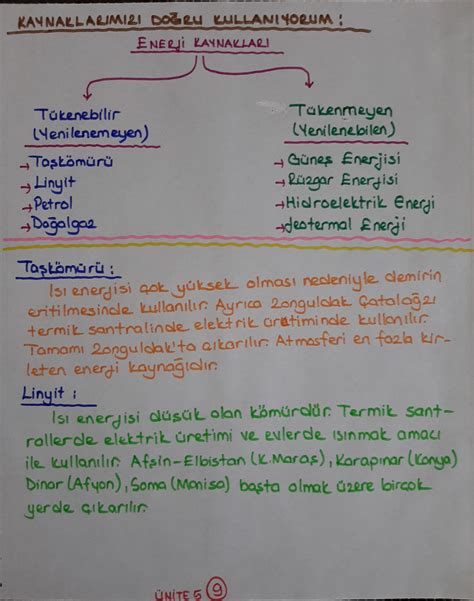 KAYNAKLARIMIZI DOĞRU KULLANIYORUM :
ENERJİ KAYNAKLARI
Tükenebilir
(Yenilenemeyen)
→ Taşkömürü
→ Linyit
→ Petrol
→ Doğalgaz
Tükenmeyen
(Yenilenebilen)
→ Güneş Enerjisi
→ Rüzgar Enerjisi
→ Hidroelektrik Enerji
→ Jeotermal Enerji
Taşkömürü :
Isı energisi çok yüksek olması nedeniyle demirin
eritilmesinde kullanılır. Ayrıca Zonguldak Çatalağzı
termik santralinde elektrik üretiminde kullanılır.
Tamamı Zonguldak'ta çıkarılır. Atmosferi en fazla kir-
leten enerji kaynağıdır.
Linyit :
Isı energisi düşük olan kömürdür. Termik sant-
rallerde elektrik üretimi ve evlerde ısınmak amacı
ile kullanılır. Afşin-Elbistan (K.Maraş), Karapınar (Konya)
Dinar (Afyon), Soma (Manisa) başta olmak üzere birçok
yerde çıkarılır.
ÜNİTE 5 9